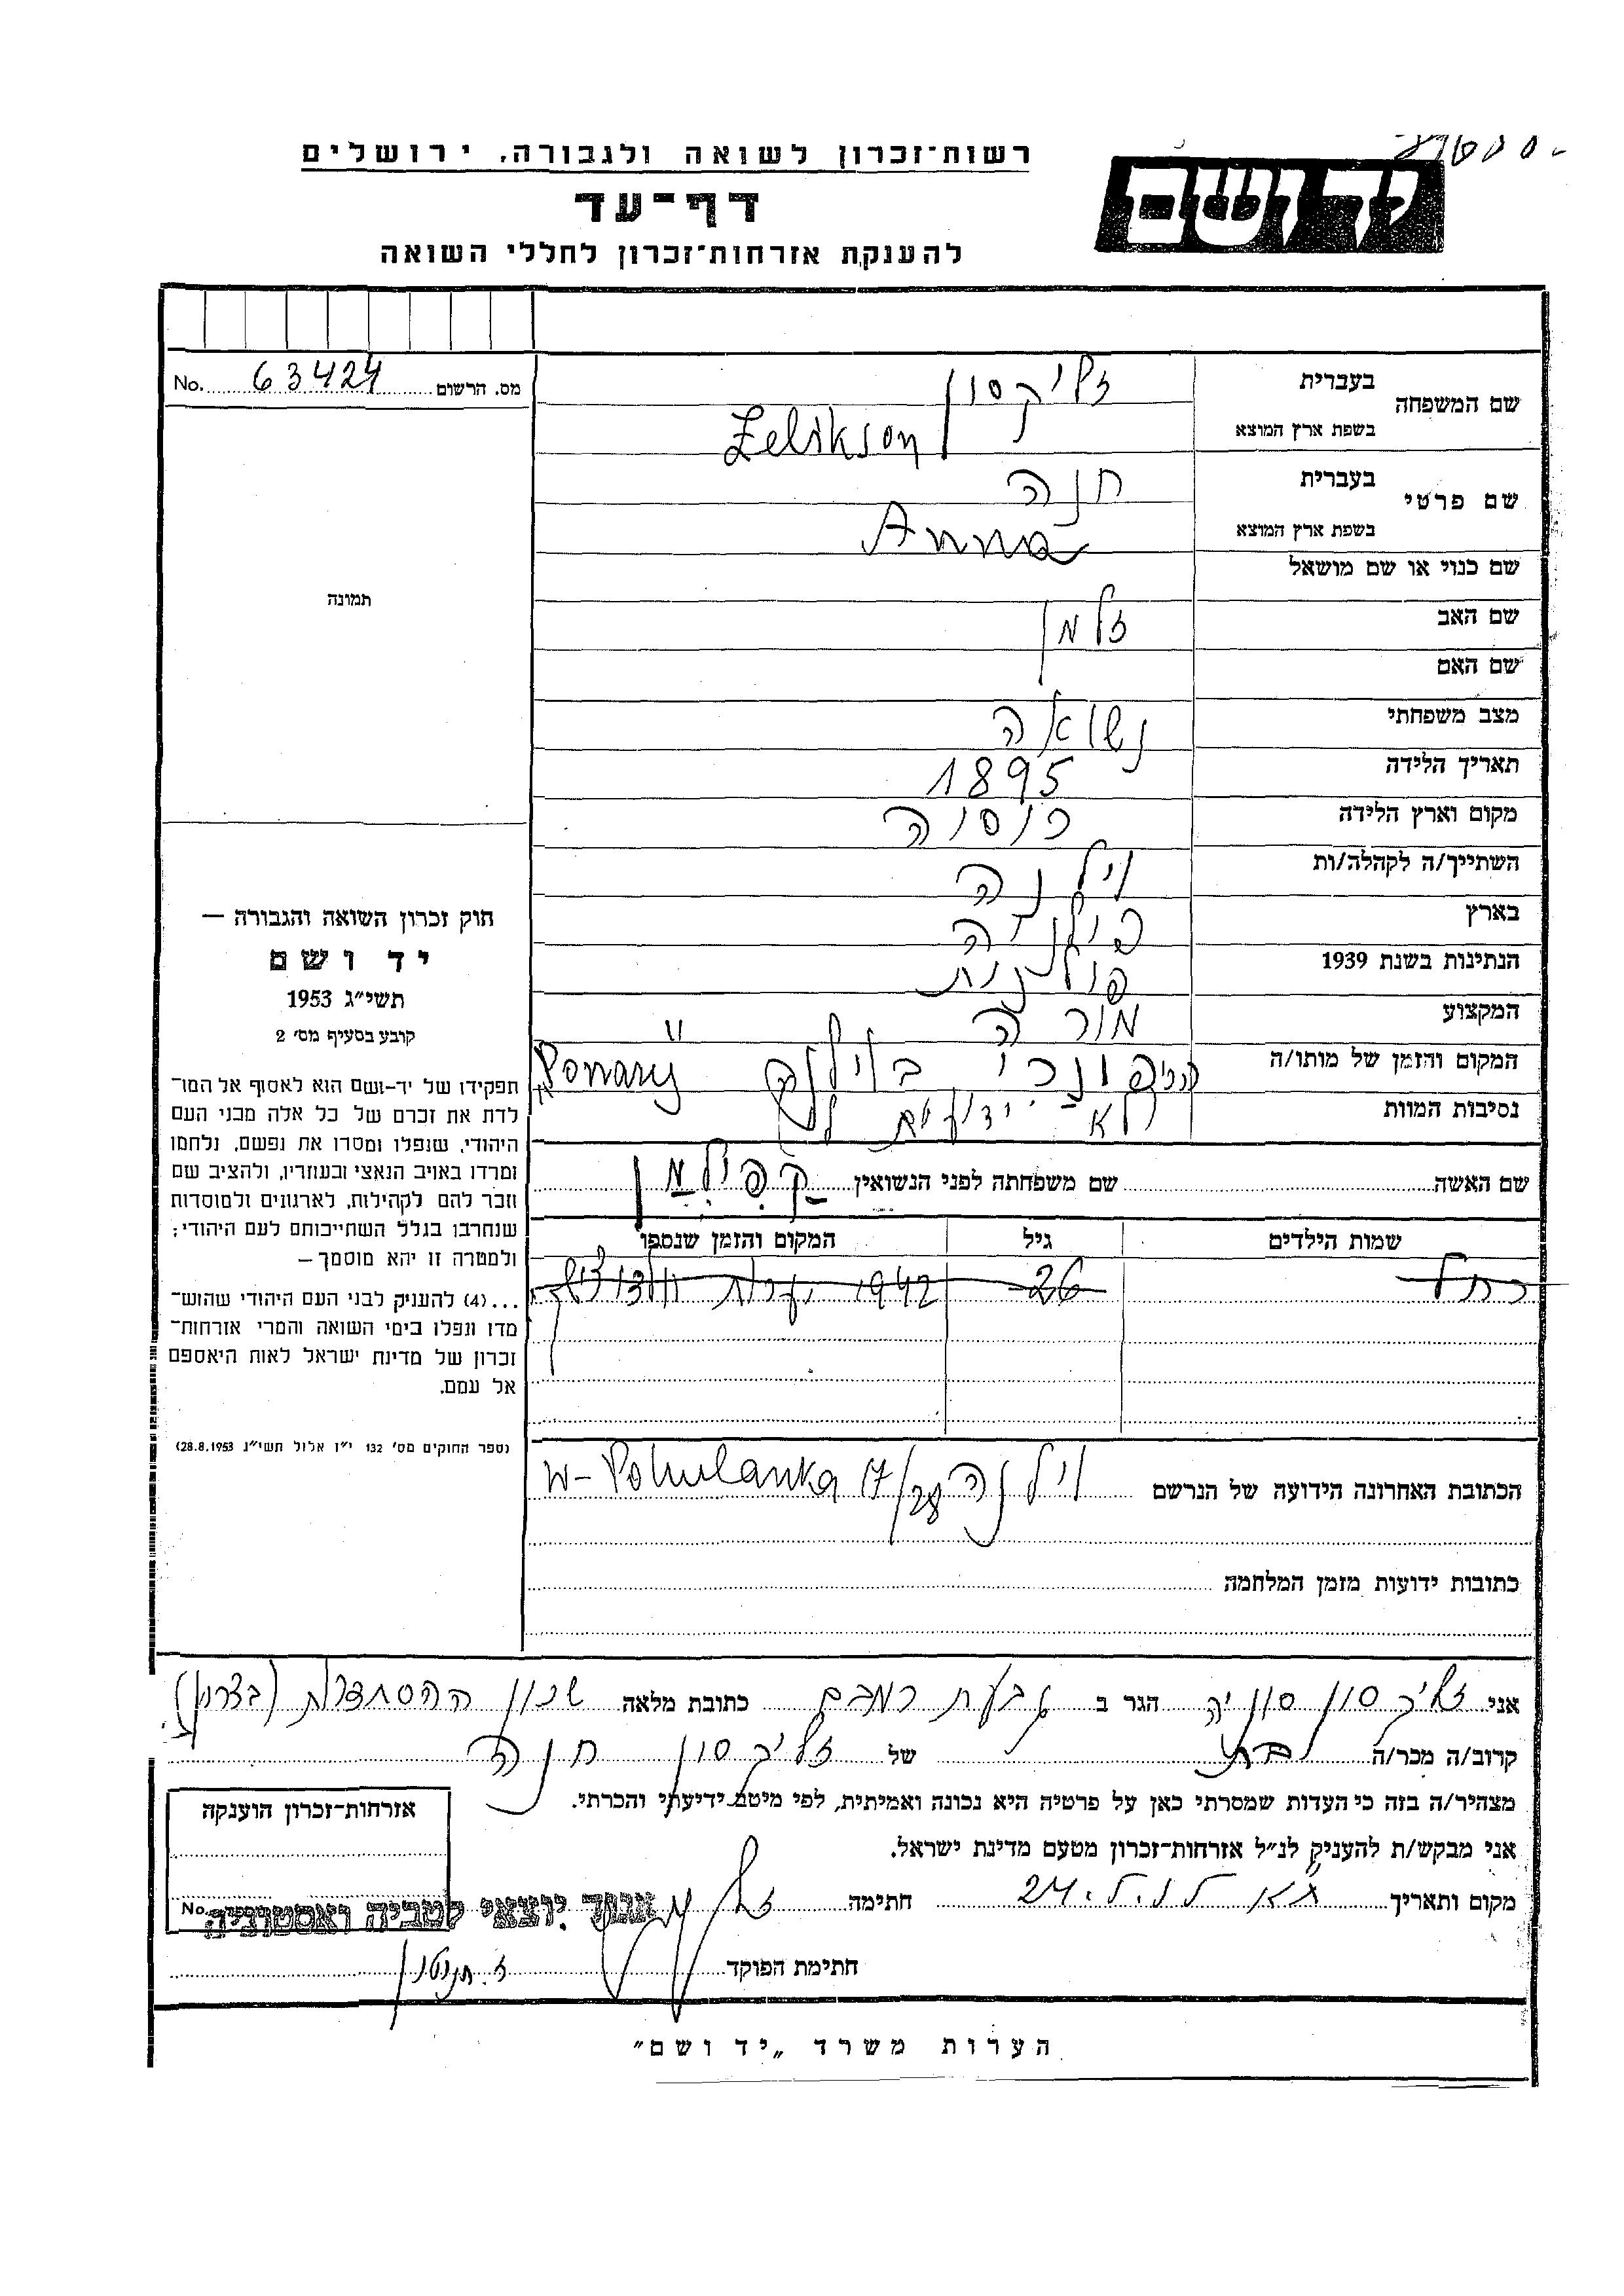 רשות־זכרון לשואה ולגבורה, ירושלים
יד ושם
דף־עד
להענקת אזרחות־זכרון לחללי השואה
מס. הרשום 63424 No.
תמונה
שם המשפחה
בעברית זליקסון
בשפת ארץ המוצא Zelikson
שם פרטי
בעברית חנה
בשפת ארץ המוצא Anna
שם כנוי או שם מושאל
שם האב זלמן
שם האם
מצב משפחתי נשואה
תאריך הלידה 1895
מקום וארץ הלידה רוסיה
השתייך/ה לקהלה/ות וילנה
בארץ פולניה
הנתינות בשנת 1939 פולנית
המקצוע מורה
המקום והזמן של מותו/ה פונרי בוילנה Ponary
נסיבות המוות לא ידועים לי
שם האשה שם משפחתה לפני הנשואין קפילמן
שמות הילדים גיל המקום והזמן שנספו
רחל 26 1942
הכתובת האחרונה הידועה של הנרשם וילנה W-Pohulanka 17/
כתובות ידועות מזמן המלחמה
חוק זכרון השואה והגבורה —
יד ושם
תשי״ג 1953
קובע בסעיף מס׳ 2
תפקידו של יד־ושם הוא לאסוף אל המו־
לדת את זכרם של כל אלה מבני העם
היהודי, שנפלו ומסרו את נפשם, נלחמו
ומרדו באויב הנאצי ובעוזריו, ולהציב שם
וזכר להם לקהילות, לארגונים ולמוסדות
שנחרבו בגלל השתייכותם לעם היהודי;
ולמטרה זו יהא מוסמך —
...(4) להענקיק לבני העם היהודי שהוש־
מדו ונפלו בימי השואה והמרי אזרחות־
זכרון של מדינת ישראל לאות היאספם
אל עמם.
(ספר החוקים מס׳ 132 י״ז אלול תשי״ג 28.8.1953)
אני זליקסון סוניה הגר ב גבעת רמבם כתובת מלאה שכון ההסתדרות (בצרון)
קרוב/ה מכר/ה בת של זליקסון חנה
מצהיר/ה בזה כי העדות שמסרתי כאן על פרטיה היא נכונה ואמיתית, לפי מיטב ידיעתי והכרתי.
אני מבקש/ת להעניק לנ״ל אזרחות־זכרון מטעם מדינת ישראל.
מקום ותאריך חתימה
אזרחות־זכרון הוענקה
No.
יוצאי לטביה ואסטוניה
חתימת הפוקד
הערות משרד „יד ושם״